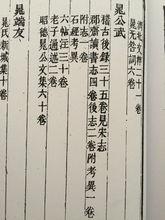 晁无咎詞六卷
晁公武
稽古後錄三十五卷見宋志
郡齋讀書志四卷後志二卷附考異一卷
附志一卷
石經考異一卷
六帖注三十卷
老子通述二卷
昭德晁公文集六十卷
晁端友
晁氏新城集十卷